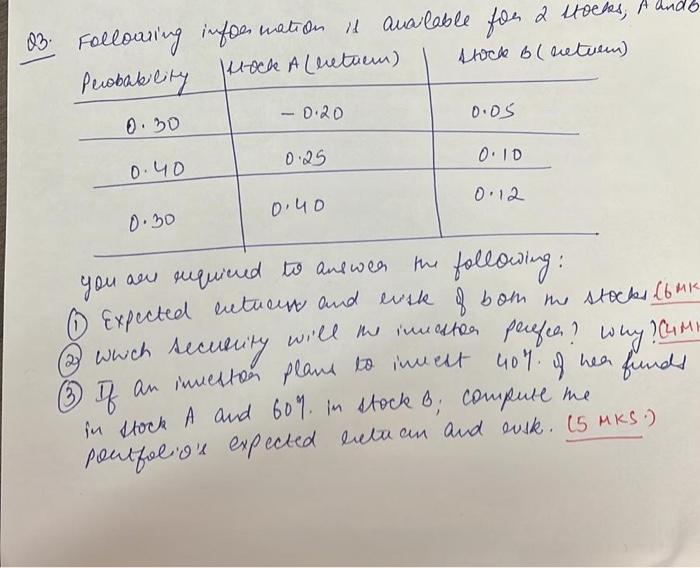 Q3. Following information is available for 2 stocks, A and B
Probability Stock A (return) Stock B (return)
0.30 - 0.20 0.05
0.40 0.25 0.10
0.30 0.40 0.12
you are required to answer the following:
① Expected return and risk of both the stocks (6 MK
② Which security will the investor prefer? Why? (4 M
③ If an investor plans to invest 40%. of her funds
in stock A and 60%. in stock B; compute the
portfolio's expected return and risk. (5 MKS.)